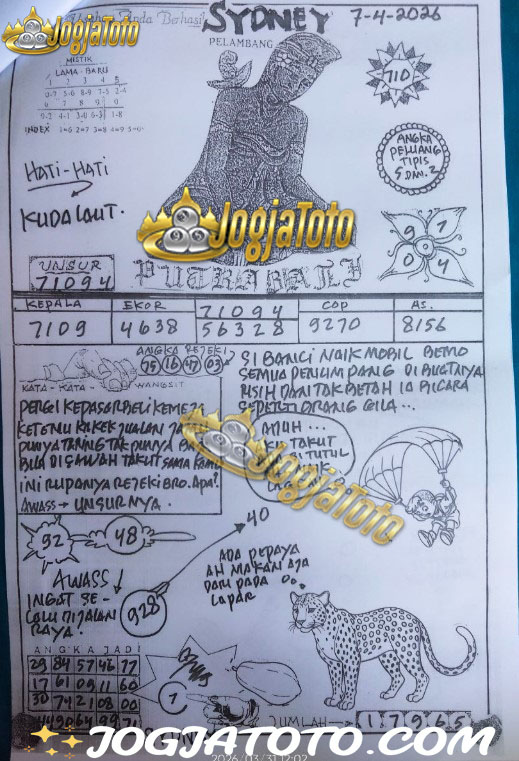 Anda Berhasil
SYDNEY 7-4-2026
JogjaToto
PELAMBANG
MISTIK
LAMA-BARU
1 2 3 4 5
0-7 5-6 8-9 7-3 2-4
6 7 8 9
9-2 4-1 3-0 6-5 1-8
INDEX 1=6 2=7 3=8 4=9 5=0
710
ANGKA
PELUANG
TIPIS
5 DAN 2
HATI-HATI
KUDA LAUT.
9 7
0 4
JogjaToto
UNSUR
71094
PUTRA BALI
KEPALA EKOR 71094 COP AS.
7109 4638 56328 9270 8156
ANGKA REJEKI
25 16 47 03
SI BANCI NAIK MOBIL BEMO
SEMUA PENUMPANG DI BUATNYA
RISIH DAN TAK BETAH IA BICARA
SEPERTI ORANG GILA...
KATA-KATA WANGSIT
PERGI KEPASAR BELI KEMEJA
KETEMU KAKEK JUALAN
PUNYA TARING TAK PUNYA
BILA DI SAWAH TAKUT SAMA
INI RUPANYA REJEKI BRO. APA?
AWASS → UNSURNYA.
TAKUT
JogjaToto
92
48
40
AWASS!
INGAT SE-
LALU DI JALAN
RAYA.
928
ADA PEPAYA
AH MAKAN AJA
DARI PADA
LAPAR
ANGKA JADI
29 84 57 46 77
17 61 09 11 60
30 74 21 08 00
7
JUMLAH → 1 7 9 6 5
JOGJATOTO.COM
2026/03/31 12:02